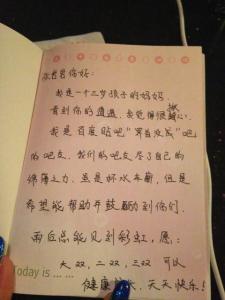 你爸爸你好:
我是一个三岁孩子的妈妈,
看到你的遭遇,我觉得很揪心。
我是百度贴吧"
"吧
的吧友,我们的吧友尽了自己的
绵薄之力,虽是杯水车薪,但是
希望能帮助并鼓励到你们。
雨后总能见到彩虹,愿:
大双,二双,三双 可以
Today is
健康
,天天快乐!